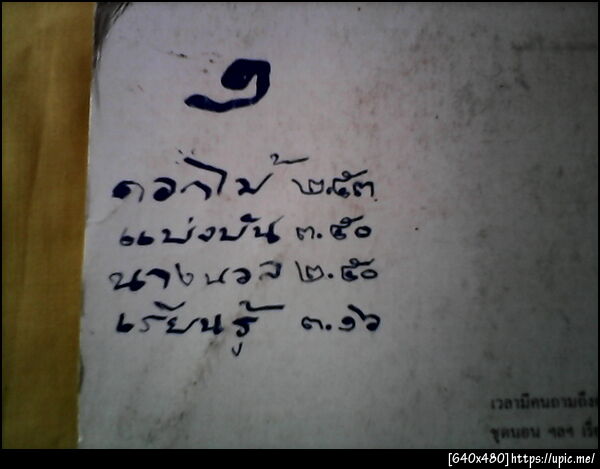 ๑
ดอกไม้ ๒.๕๓
แบ่งบัน ๓.๕๐
นางนวล ๒.๕๐
เรียนรู้ ๓.๑๖
เวลามีคนถามถึง
ชุดนอน ฯลฯ เรื่
[640x480]https://upic.me/